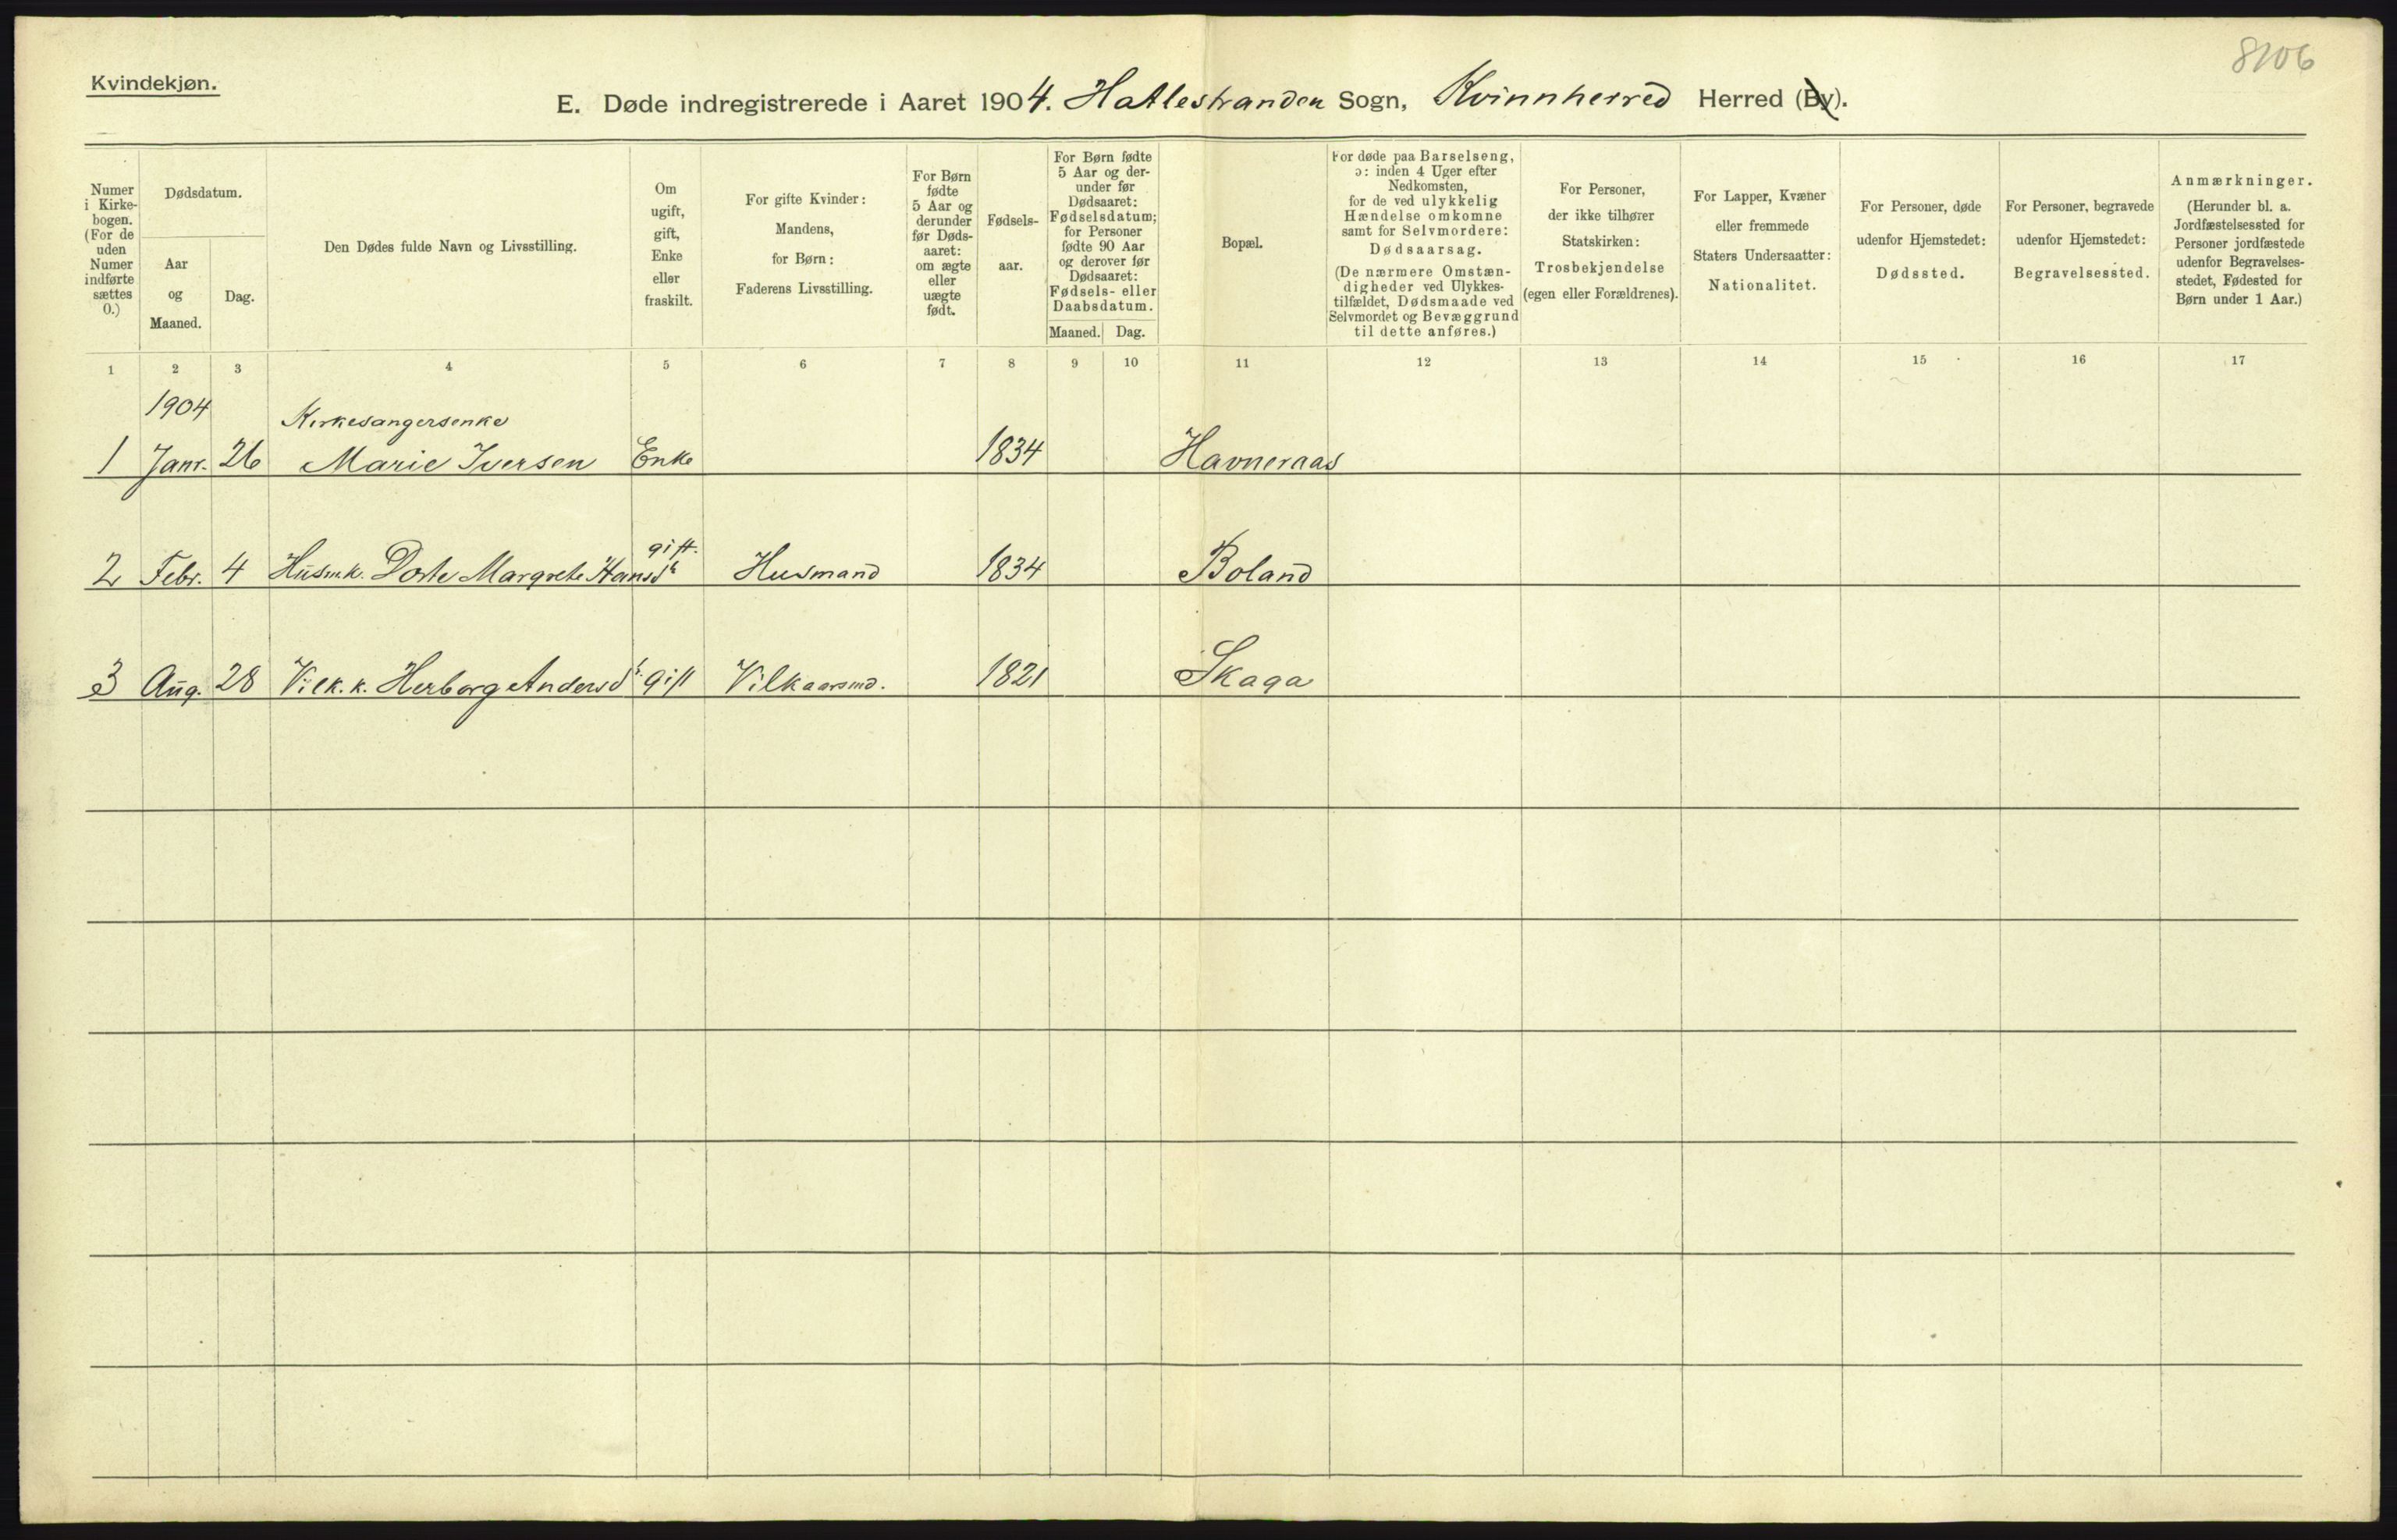 8106
Kvindekjøn.
E. Døde indregistrerede i Aaret 1904. Hatlestranden Sogn, Kvinnherred Herred (By).
Numer
i Kirke-
bogen.
(For de
uden
Numer
indførte
sættes
0.)
Dødsdatum.
Aar
og
Maaned.
Dag.
Den Dødes fulde Navn og Livsstilling.
Om
ugift,
gift,
Enke
eller
fraskilt.
For gifte Kvinder:
Mandens,
for Børn:
Faderens Livsstilling.
For Børn
fødte
5 Aar og
derunder
før Døds-
aaret:
om ægte
eller
uægte
født.
Fødsels-
aar.
For Børn fødte
5 Aar og der-
under før
Dødsaaret:
Fødselsdatum;
for Personer
fødte 90 Aar
og derover før
Dødsaaret:
Fødsels- eller
Daabsdatum.
Maaned. Dag.
Bopæl.
For døde paa Barselseng,
ɔ: inden 4 Uger efter
Nedkomsten,
for de ved ulykkelig
Hændelse omkomne
samt for Selvmordere:
Dødsaarsag.
(De nærmere Omstæn-
digheder ved Ulykkes-
tilfældet, Dødsmaade ved
Selvmordet og Bevæggrund
til dette anføres.)
For Personer,
der ikke tilhører
Statskirken:
Trosbekjendelse
(egen eller Forældrenes).
For Lapper, Kvæner
eller fremmede
Staters Undersaatter:
Nationalitet.
For Personer, døde
udenfor Hjemstedet:
Dødssted.
For Personer, begravede
udenfor Hjemstedet:
Begravelsessted.
Anmærkninger.
(Herunder bl. a.
Jordfæstelsessted for
Personer jordfæstede
udenfor Begravelses-
stedet, Fødested for
Børn under 1 Aar.)
1 2 3 4 5 6 7 8 9 10 11 12 13 14 15 16 17
1904 Kirkesangersenke
1 Janr. 26 Marie Iversen Enke 1834 Havneraas
gift.
2 Febr. 4 Husm.k. Dorte Margrete Hansdr Husmand 1834 Boland
3 Aug. 28 Vilk.k. Herborg Andersdr. gift Vilkaarsmd. 1821 Skaga